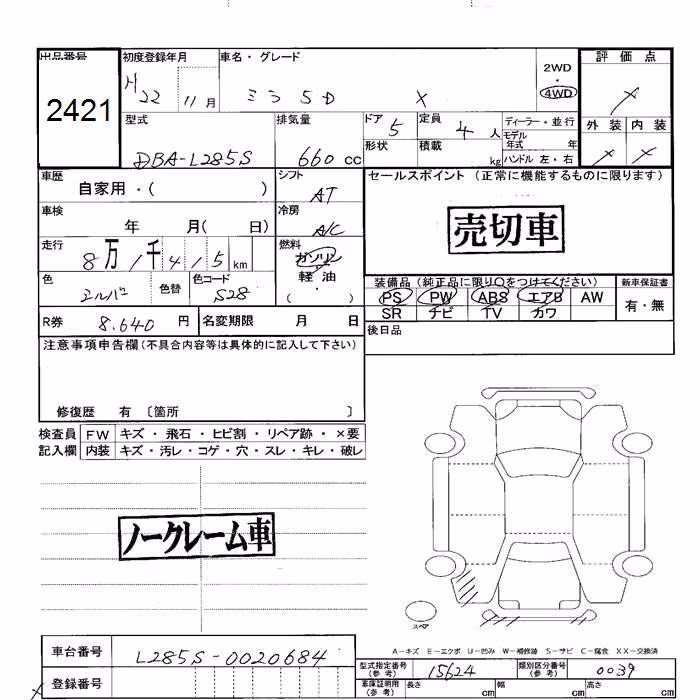 出品番号 初度登録年月 車名・グレード 評価点
2421
H22 11月 ミラ 5D X
2WD
・
4WD
型式 排気量 ドア 定員 ディーラー・並行 外装 内装
5 4人 モデル
年式 年
形状 積載 kg ハンドル 左・右
DBA-L285S 660cc
車歴 シフト セールスポイント (正常に機能するものに限ります)
自家用・( ) AT
車検 冷房
年 月( 日) A/C
売切車
走行 燃料
8万1千415km ガソリン
軽油
・
( )
色 色替 色コード
シルバー S28
装備品 (純正品に限り○をつけてください) 新車保証書
PS PW ABS エアB AW 有・無
SR ナビ TV カワ
R券 8.640円 名変期限 月 日
後日品
注意事項申告欄(不具合内容等は具体的に記入して下さい)
修復歴 有 〔箇所 〕
検査員 FW キズ・飛石・ヒビ割・リペア跡・×要
記入欄 内装 キズ・汚レ・コゲ・穴・スレ・キレ・破レ
ノークレーム車
スペア
A-キズ E-エクボ U-凹み W-補修跡 S-サビ C-腐食 XX-交換済
車台番号 L285S-0020684
型式指定番号
(参考) 15624 類別区分番号
(参考) 0039
登録番号
車庫証明用
(参考) 長さ cm 幅 cm 高さ cm